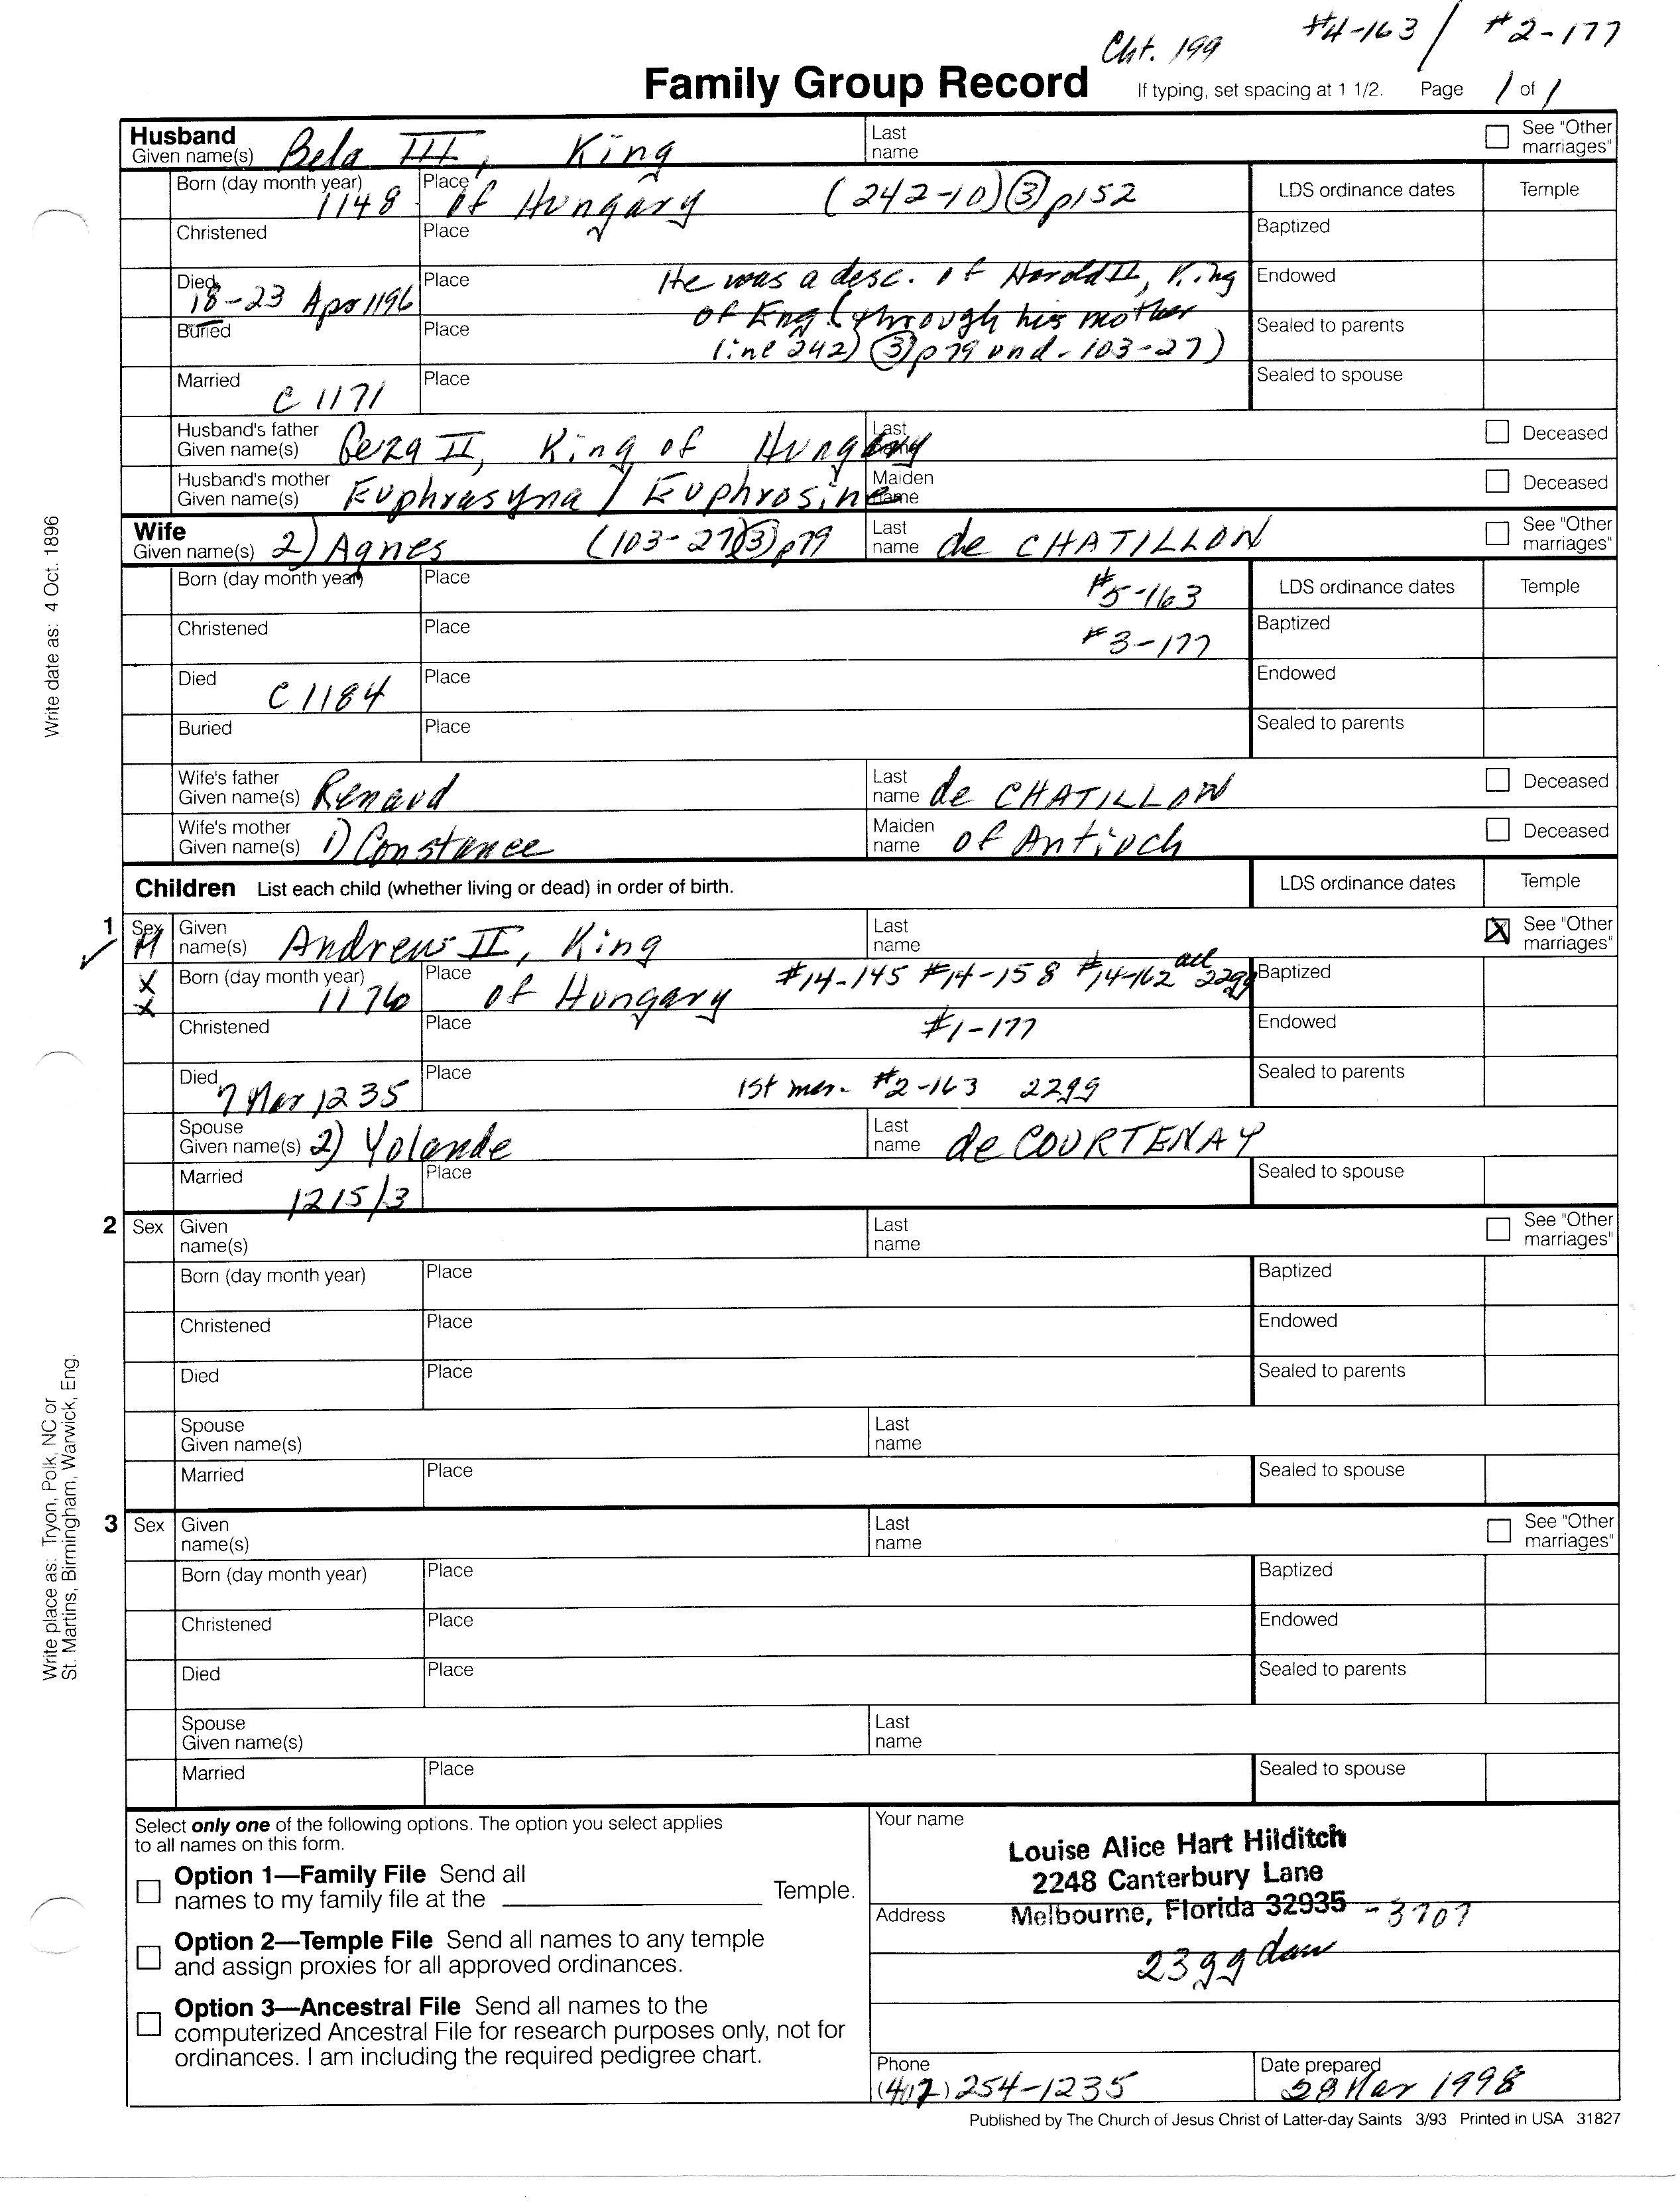 #4-163 / #2-177
Cht. 199
Family Group Record
If typing, set spacing at 1 1/2. Page 1 of 1
Husband
Given name(s) Bela III, King
Last name
See "Other marriages"
Born (day month year) 1148
Place of Hungary (242-10) (3) p152
LDS ordinance dates
Temple
Christened
Place
Baptized
Died 18-23 Apr 1196
Place
He was a desc. of Harold II, King
of Eng. (through his mother
line 242) (3) p79 and - 103-27)
Endowed
Buried
Place
Sealed to parents
Married C 1171
Place
Sealed to spouse
Husband's father
Given name(s) Geza II, King of Hungary
Last name
Deceased
Husband's mother
Given name(s) Euphrasyna / Euphrosine
Maiden name
Deceased
Wife
Given name(s) 2) Agnes (103-27)(3) p79
Last name de CHATILLON
See "Other marriages"
Born (day month year)
Place
#5-163
LDS ordinance dates
Temple
Christened
Place
#3-177
Baptized
Died C 1184
Place
Endowed
Buried
Place
Sealed to parents
Wife's father
Given name(s) Renaud
Last name de CHATILLON
Deceased
Wife's mother
Given name(s) 1) Constance
Maiden name of Antioch
Deceased
Children List each child (whether living or dead) in order of birth.
LDS ordinance dates
Temple
1 Sex M
Given name(s) Andrew II, King
Last name
X See "Other marriages"
X
X
Born (day month year) 1176
Place of Hungary #14-145 #14-158 #14-162 all 22gg
Baptized
Christened
Place
#1-177
Endowed
Died 7 Mar 1235
Place
1st mar. #2-163 22gg
Sealed to parents
Spouse
Given name(s) 2) Yolande
Last name de COURTENAY
Married 1215/3
Place
Sealed to spouse
2 Sex
Given name(s)
Last name
See "Other marriages"
Born (day month year)
Place
Baptized
Christened
Place
Endowed
Died
Place
Sealed to parents
Spouse
Given name(s)
Last name
Married
Place
Sealed to spouse
3 Sex
Given name(s)
Last name
See "Other marriages"
Born (day month year)
Place
Baptized
Christened
Place
Endowed
Died
Place
Sealed to parents
Spouse
Given name(s)
Last name
Married
Place
Sealed to spouse
Select only one of the following options. The option you select applies
to all names on this form.
Option 1—Family File Send all
names to my family file at the Temple.
Option 2—Temple File Send all names to any temple
and assign proxies for all approved ordinances.
Option 3—Ancestral File Send all names to the
computerized Ancestral File for research purposes only, not for
ordinances. I am including the required pedigree chart.
Your name
Louise Alice Hart Hilditch
2248 Canterbury Lane
Address
Melbourne, Florida 32935 -3707
23gg dau
Phone
(407) 254-1235
Date prepared
28 Mar 1998
Published by The Church of Jesus Christ of Latter-day Saints 3/93 Printed in USA 31827
Write date as: 4 Oct. 1896
Write place as: Tryon, Polk, NC or
St. Martins, Birmingham, Warwick, Eng.